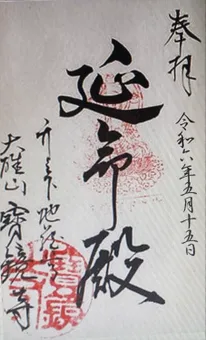 奉拝
令和六年五月十五日
延命殿
升天下地蔵尊
大雄山
寶鏡寺